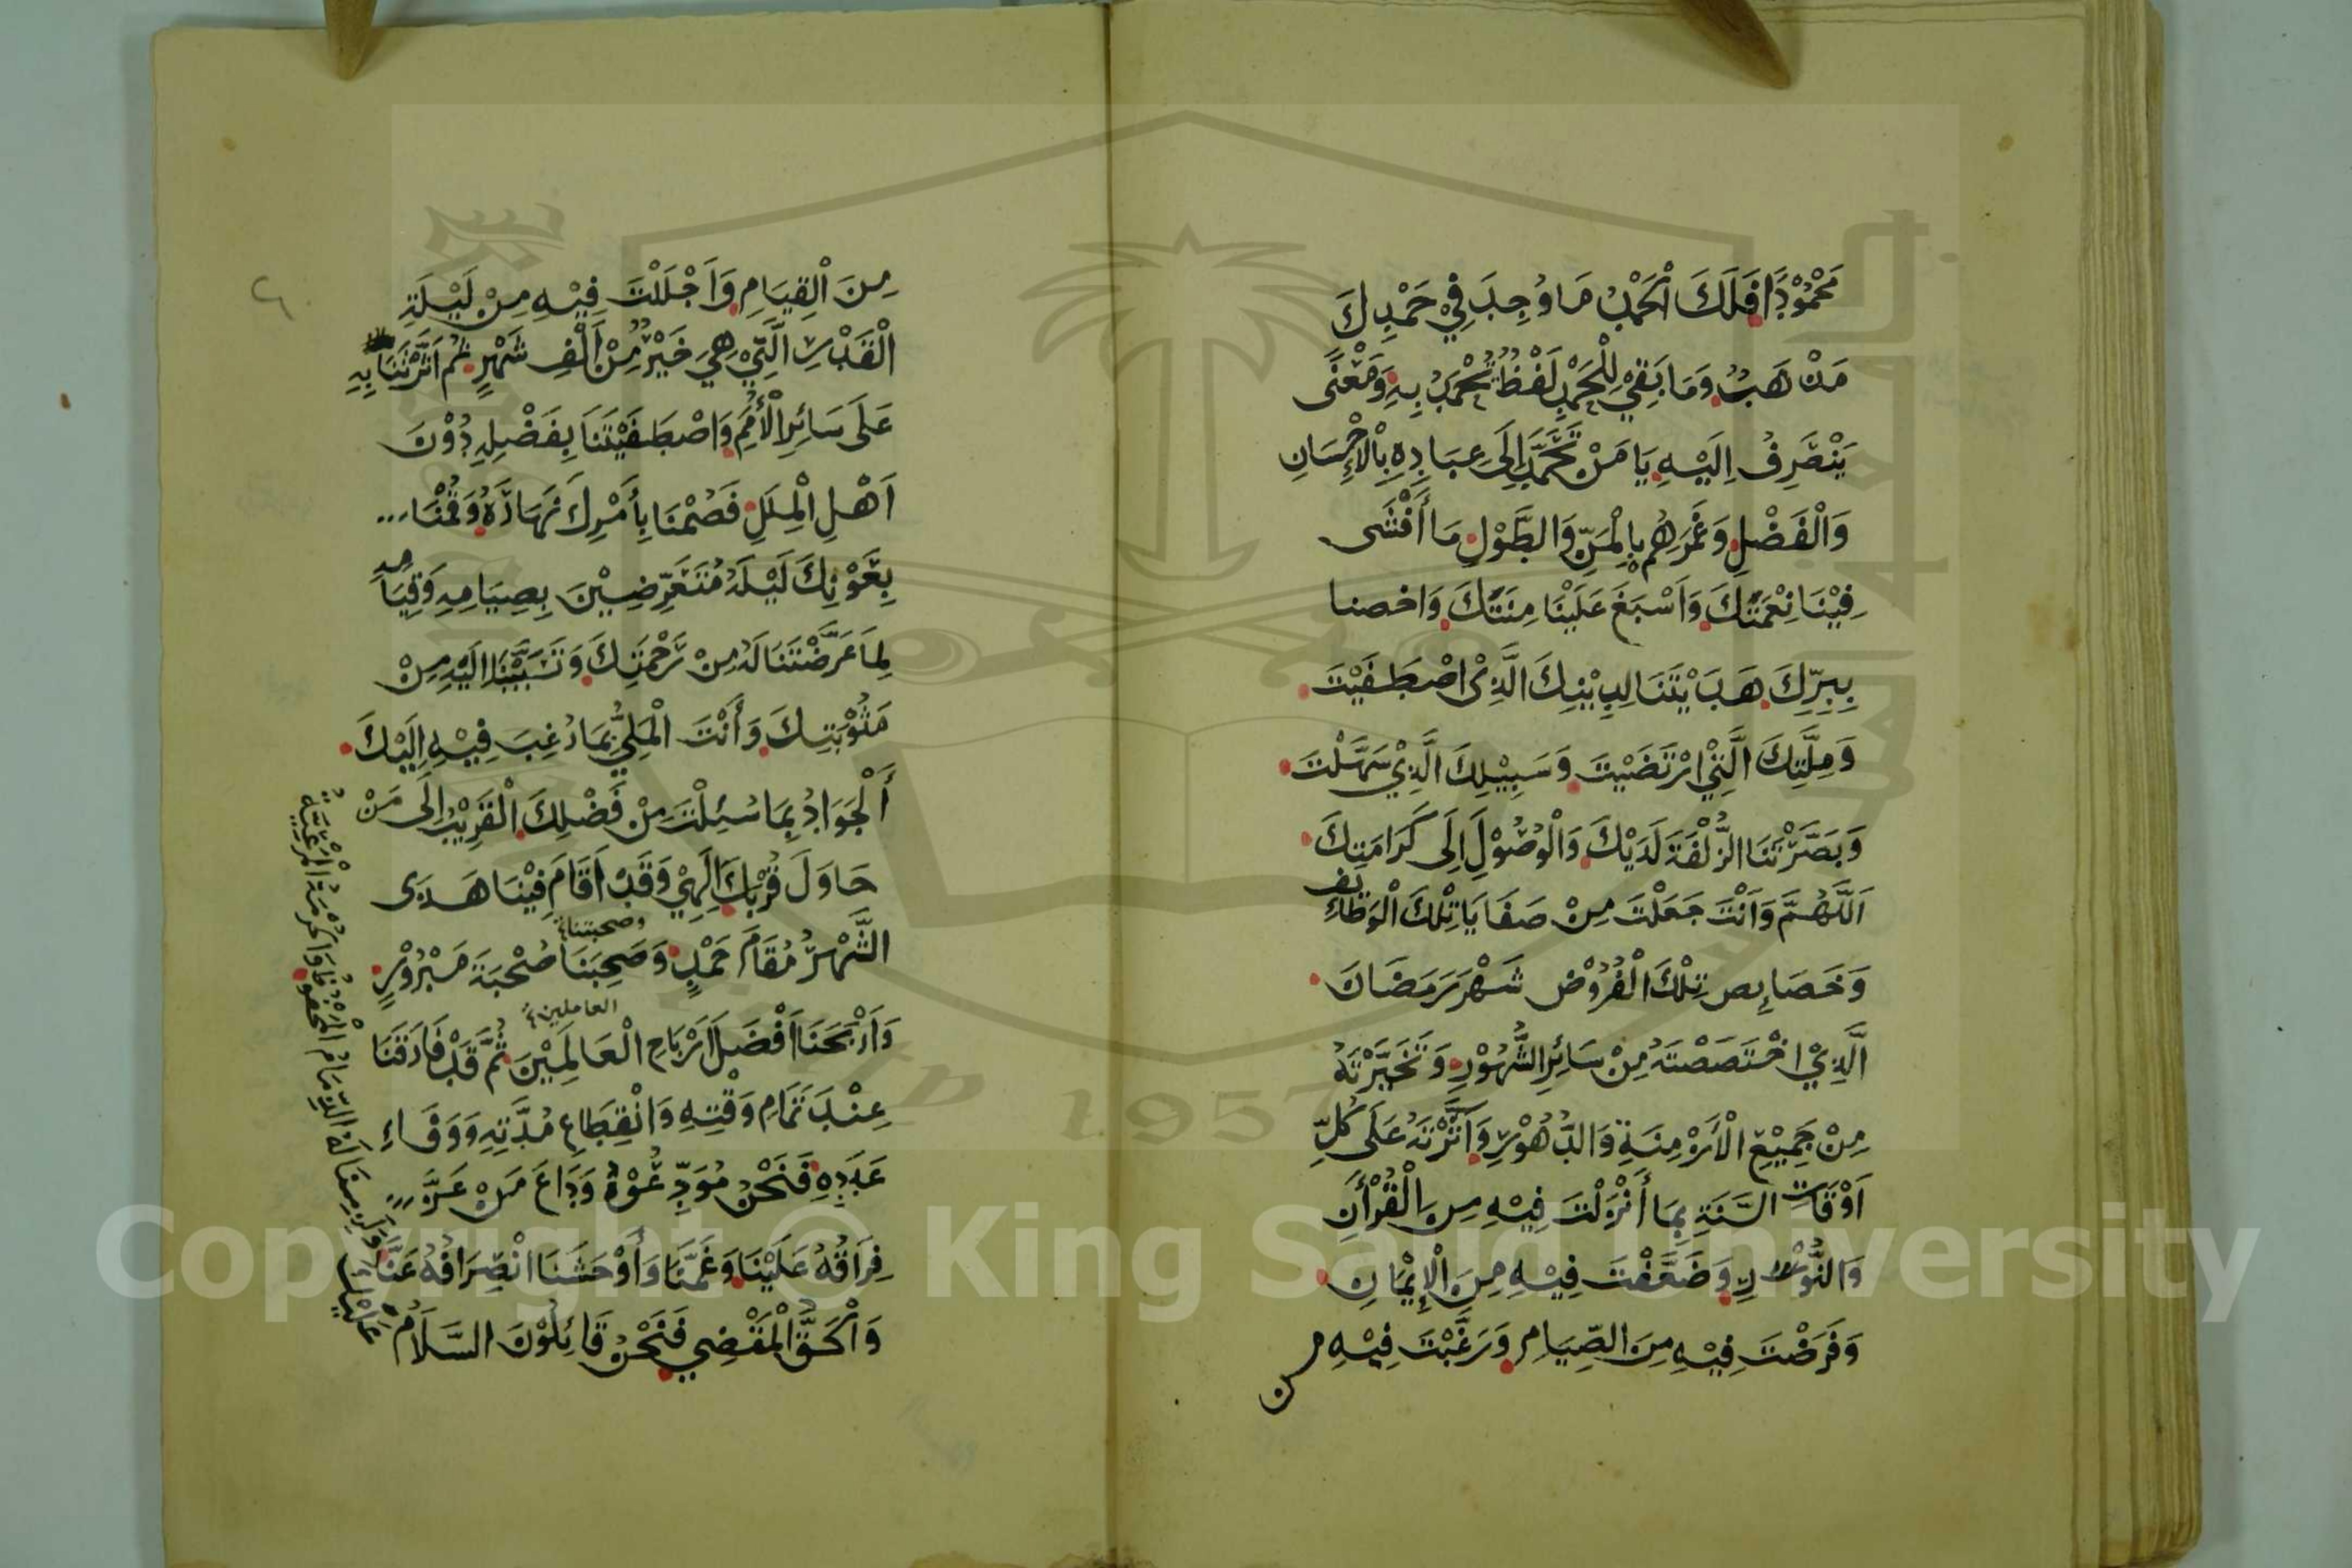 مَحْمُوْدًا فَلَكَ الْحَمْدُ مَا وُجِدَ فِيْ حَمْدِكَ
مَذْهَبٌ وَمَا بَقِيَ لِلْحَمْدِ لَفْظٌ تُحْمَدُ بِهِ وَمَعْنًى
يَنْصَرِفُ اِلَيْهِ يَا مَنْ تَحَمَّدَ اِلَى عِبَادِهِ بِالْاِحْسَانِ
وَالْفَضْلِ وَغَمَرَهُم بِالْمَنِّ وَالطَّوْلِ مَا أَفْشَى
فِيْنَا نِعْمَتَكَ وَاَسْبَغَ عَلَيْنَا مِنَّتَكَ وَاخصنا
بِبِرِّكَ هَدَيْتَنَا لِدِيْنِكَ الَّذِي اصْطَفَيْتَ
وَمِلَّتِكَ الَّتِيْ ارْتَضَيْتَ وَسَبِيْلِكَ الَّذِيْ سَهَّلْتَ
وَبَصَّرْتَنَا الزُّلْفَةَ لَدَيْكَ وَالْوُصُوْلَ اِلَى كَرَامَتِكَ
اَللّٰهُمَّ وَاَنْتَ جَعَلْتَ مِنْ صَفَايَا تِلْكَ الْوَظَائِفِ
وَخَصَائِصِ تِلْكَ الْفُرُوْضِ شَهْرَ رَمَضَانَ
الَّذِيْ اخْتَصَصْتَهُ مِنْ سَائِرِ الشُّهُوْرِ وَتَخَيَّرْتَهُ
مِنْ جَمِيْعِ الْاَزْمِنَةِ وَالدُّهُوْرِ وَآثَرْتَهُ عَلَى كُلِّ
اَوْقَاتِ السَّنَةِ بِمَا أَنْزَلْتَ فِيْهِ مِنَ الْقُرْاٰنِ
وَالنُّوْرِ وَضَعَّفْتَ فِيْهِ مِنَ الْاِيْمَانِ
وَفَرَضْتَ فِيْهِ مِنَ الصِّيَامِ وَرَغَّبْتَ فِيْهِ
من
مِنَ الْقِيَامِ وَاَجْلَلْتَ فِيْهِ مِنْ لَيْلَةِ
الْقَدْرِ الَّتِيْ هِيَ خَيْرٌ مِنْ اَلْفِ شَهْرٍ ثُمَّ اٰثَرْتَنَا بِهِ
عَلَى سَائِرِ الْأُمَمِ وَاصْطَفَيْتَنَا بِفَضْلِهِ دُوْنَ
اَهْلِ الْمِلَلِ فَصُمْنَا بِأَمْرِكَ نَهَارَهُ وَقُمْنَا
بِعَوْنِكَ لَيْلَهُ مُتَعَرِّضِيْنَ بِصِيَامِهِ وَقِيَامِهِ
لِمَا عَرَّضْتَنَا لَهُ مِنْ رَحْمَتِكَ وَتَسَبَّبْنَا اِلَيْهِ مِنْ
مَثُوْبَتِكَ وَأَنْتَ الْمَلِيُّ بِمَا رُغِبَ فِيْهِ اِلَيْكَ
أَلْجَوَادُ بِمَا سُئِلْتَ مِنْ فَضْلِكَ الْقَرِيْبُ اِلَى مَنْ
حَاوَلَ قُرْبَكَ اِلٰهِيْ وَقَدْ اَقَامَ فِيْنَا هَذَى
وصحبتنا
الشَّهْرُ مُقَامَ حَمْدٍ وَصَحِبَنَا صُحْبَةَ مَبْرُوْرٍ
العاملين
وَاَرْبَحَنَا اَفْضَلَ اَرْبَاحِ الْعَالَمِيْنَ ثُمَّ قَدْ فَارَقَنَا
عِنْدَ تَمَامِ وَقْتِهِ وَانْقِطَاعِ مُدَّتِهِ وَوَفَاءِ
عَدَدِهِ فَنَحْنُ مُوَدِّعُوْهُ وَدَاعَ مَنْ عَزَّ
فِرَاقُهُ عَلَيْنَا وَغَمَّنَا وَأَوْحَشَنَا انْصِرَافُهُ عَنَّا
وَلَزِمَنَا لَهُ الذِّمَامُ الْمَحْفُوْظُ وَالْحُرْمَةُ الْمَرْعِيَّةُ
وَالْحَقُّ الْمَقْضِيُّ فَنَحْنُ قَائِلُوْنَ السَّلَامُ
عَلَيْكَ
٦
Copyright © King Saud University
1957